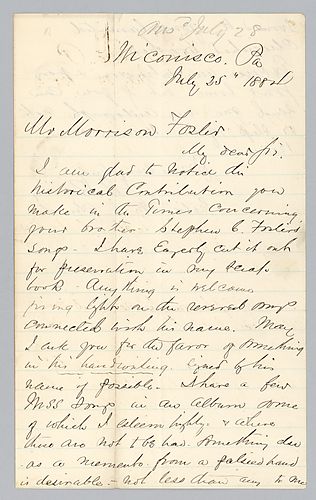 Ans July 28
Wiconisco. Pa
July 25" 1884
Mr Morrison Foster
My dear Sir.
I am glad to notice the
historical Contribution you
make in the Times concerning
your brother Stephen C. Fosters
songs - I have Eagerly cut it out
for preservation in my scrap
book - Anything is welcome
giving light on the revered songs
connected with his name. May
I ask you for the favor of something
in his handwriting signed by his
name if possible - I have a few
MSS songs in an album some
of which I esteem highly - & where
there are not to be had. something else
as a memento from a gifted hand
is desirable - not less than any to me